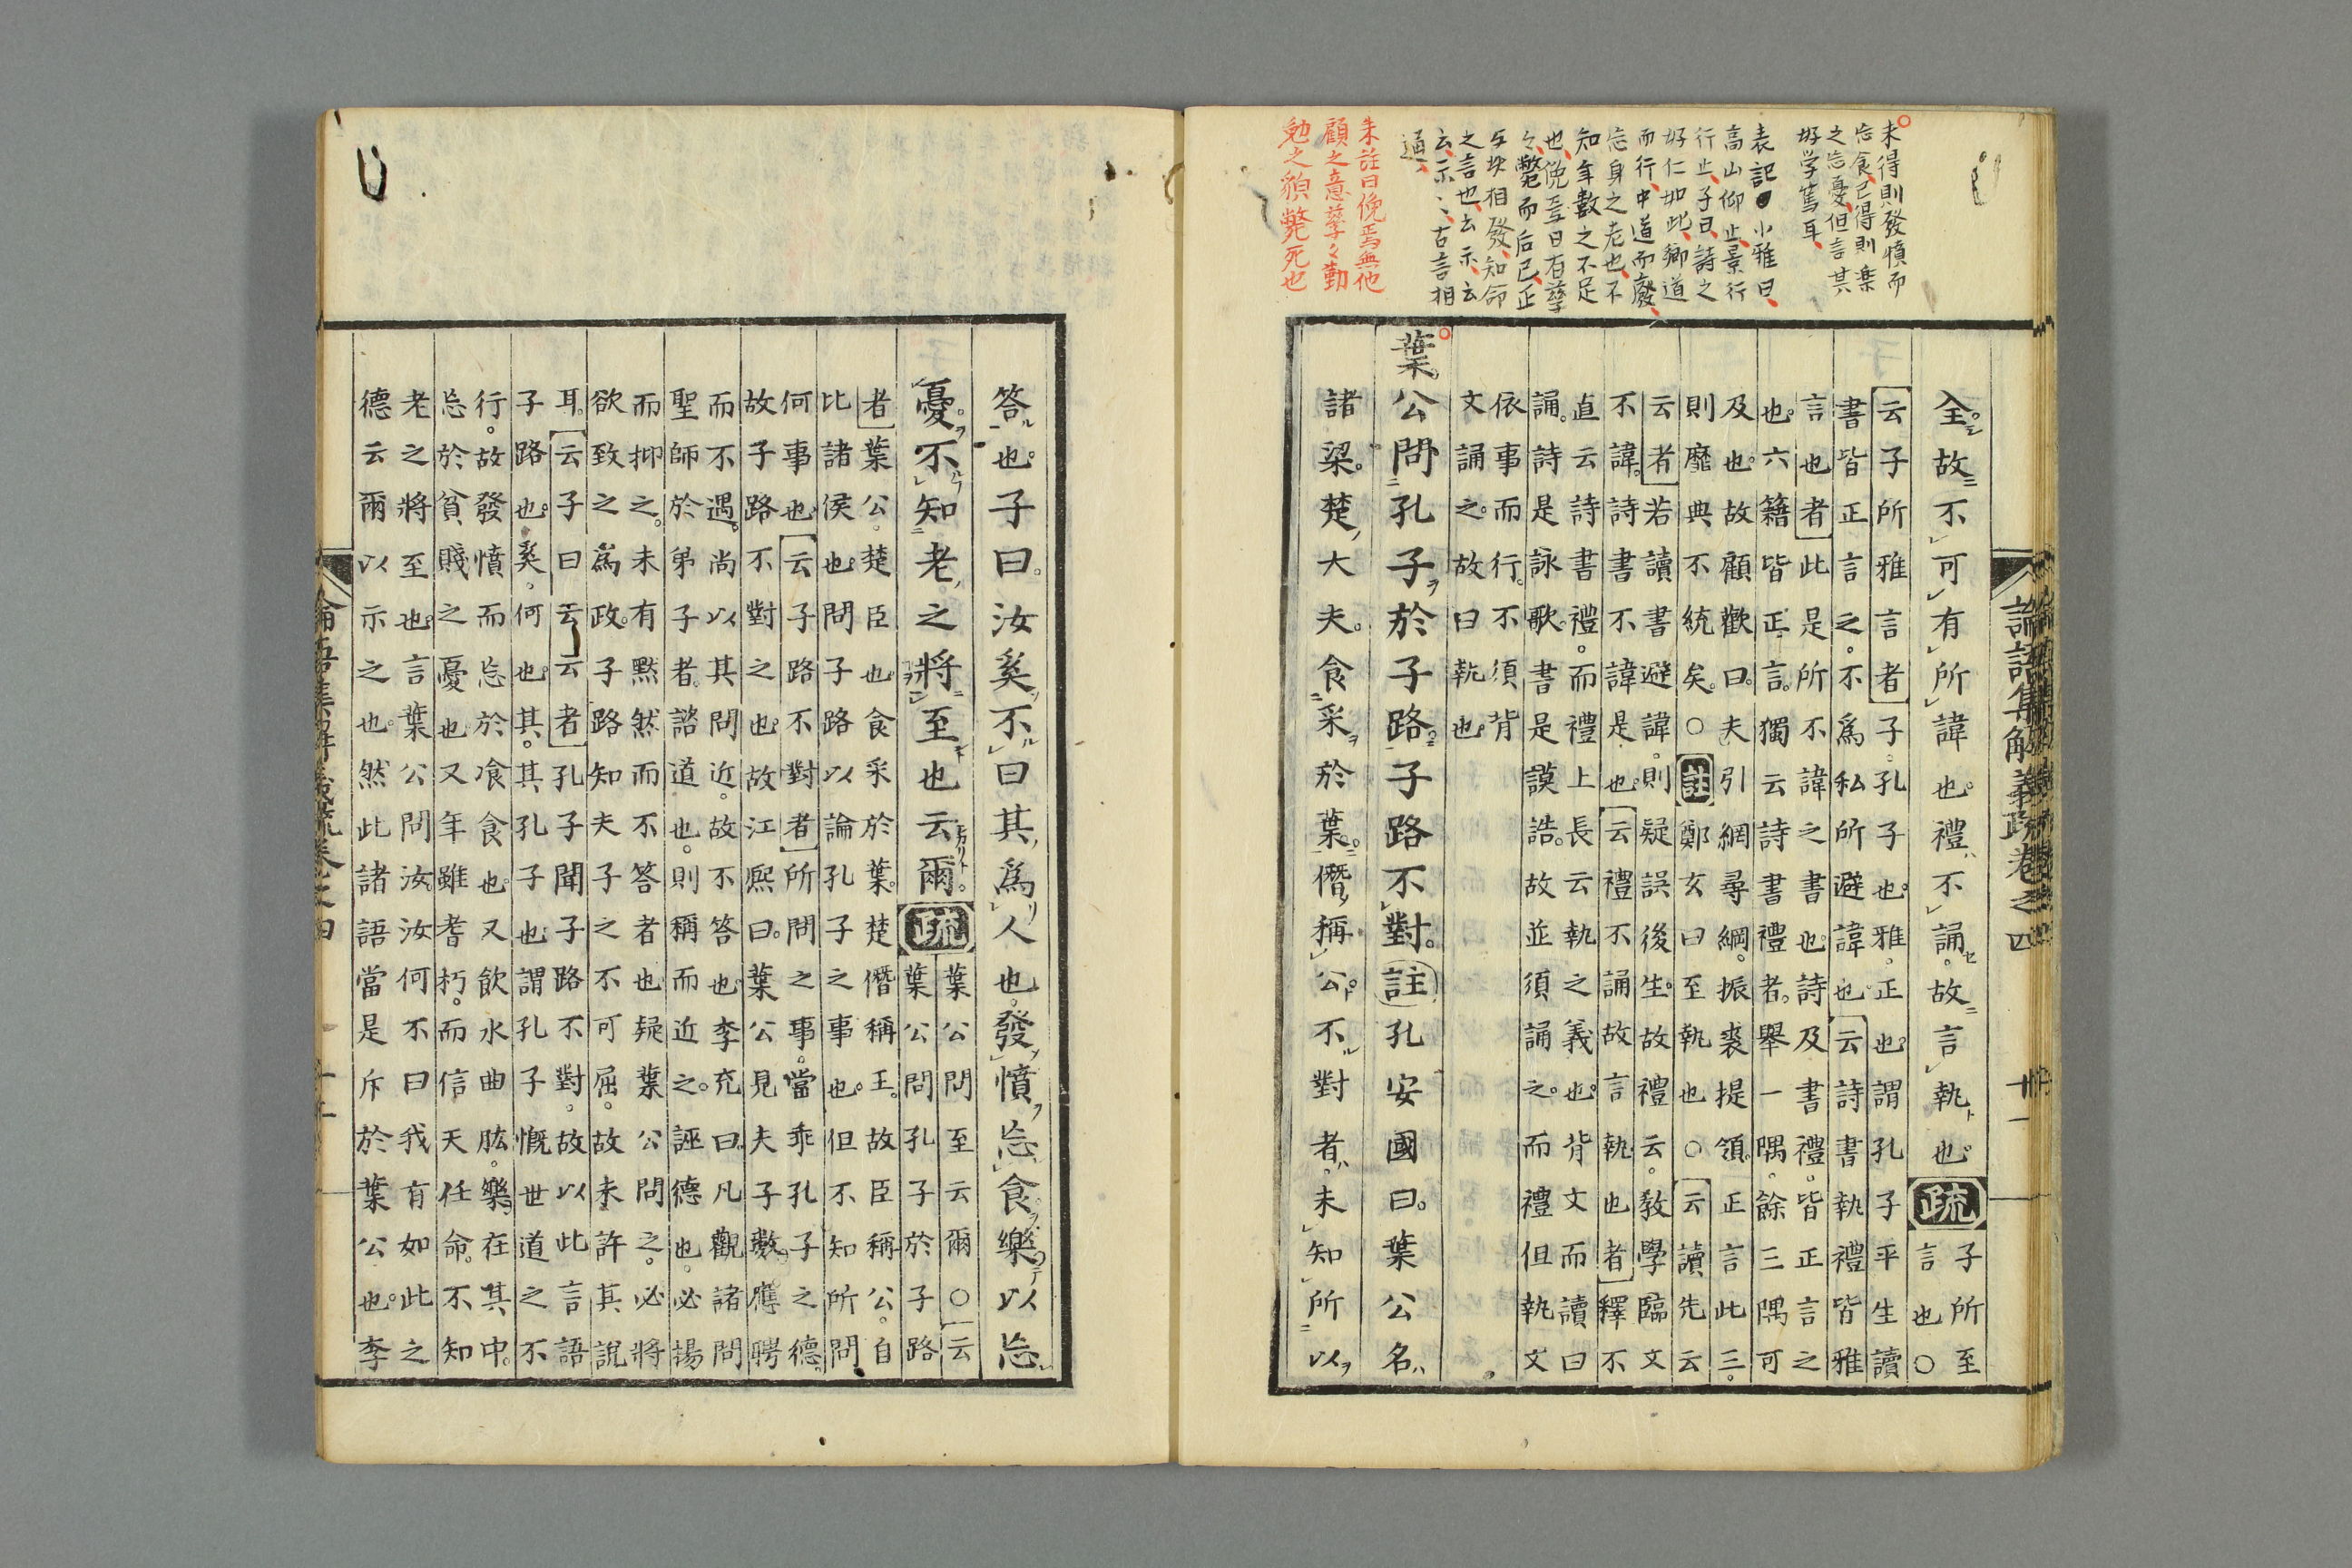 未得則發憤而
忘食已得則楽
之忘憂但言其
好学篤耳
表記小雅曰
高山仰止景行
行止子曰詩之
好仁如此鄉道
而行中道而廢
忘身之老也不
知年數之不足
也俛焉日有孳
々斃而后已正
与此相發知命
之言也云示云
云示〻古言相
通
朱註曰俛焉無他
顧之意孳々勤
勉之貌斃死也
論語集解義疏卷之四 廿一
全。故不可有所諱也。禮不誦。故言執也。疏子所至
言也○
云子所雅言者子孔子也。雅。正也謂孔子平生讀
書皆正言之。不爲私所避諱也云詩書執禮皆雅
言也者此是所不諱之書也詩及書禮。皆正言之
也。六籍皆正言。獨云詩書禮者。舉一隅。餘三隅可
及也。故顧歡曰。夫引網尋綱。振裘提領。正言此三。
則靡典不統矣。○註鄭玄曰至執也○云讀先云
云者若讀書避諱。則疑誤後生。故禮云。敎學臨文
不諱。詩書不諱是也。云禮不誦故言執也者釋不
直云詩書禮。而禮上長云執之義也。背文而讀曰
誦。詩是詠歌。書是謨誥。故並須誦之。而禮但執文
依事而行。不須背
文誦之。故曰執也。
葉公問孔子於子路。子路不對。註孔安國曰。葉公名
諸梁。楚大夫。食采於葉。僭稱公。不對者。未知所以
答也。子曰。汝奚不曰其爲人也。發憤忘食。樂以忘
憂。不知老之將至也云爾。疏葉公問至云爾○云
葉公問孔子於子路
者葉公。楚臣也食采於葉。楚僭稱王。故臣稱公。自
比諸侯也。問子路以論孔子之事也。但不知所問
何事也云子路不對者所問之事。當乖孔子之德。
故子路不對之也。故江熙曰。葉公見夫子數應聘
而不遇。尚以其問近。故不答也。李充曰。凡觀諸問
聖師於弟子者。諮道也。則稱而近之。誣德也。必揚
而抑之。未有默然而不答者也疑葉公問之。必將
欲致之爲政。子路知夫子之不可屈。故未許其說
耳。云子曰云云者孔子聞子路不對。故以此言語
子路也。奚。何也。其。其孔子也謂孔子慨世道之不
行。故發憤而忘於飡食也。又飲水曲肱。樂在其中。
忘於貧賤之憂也又年雖耆朽。而信天任命。不知
老之將至也。言葉公問汝。汝何不曰我有如此之
德云爾以示之也。然此諸語當是斥於葉公也。李